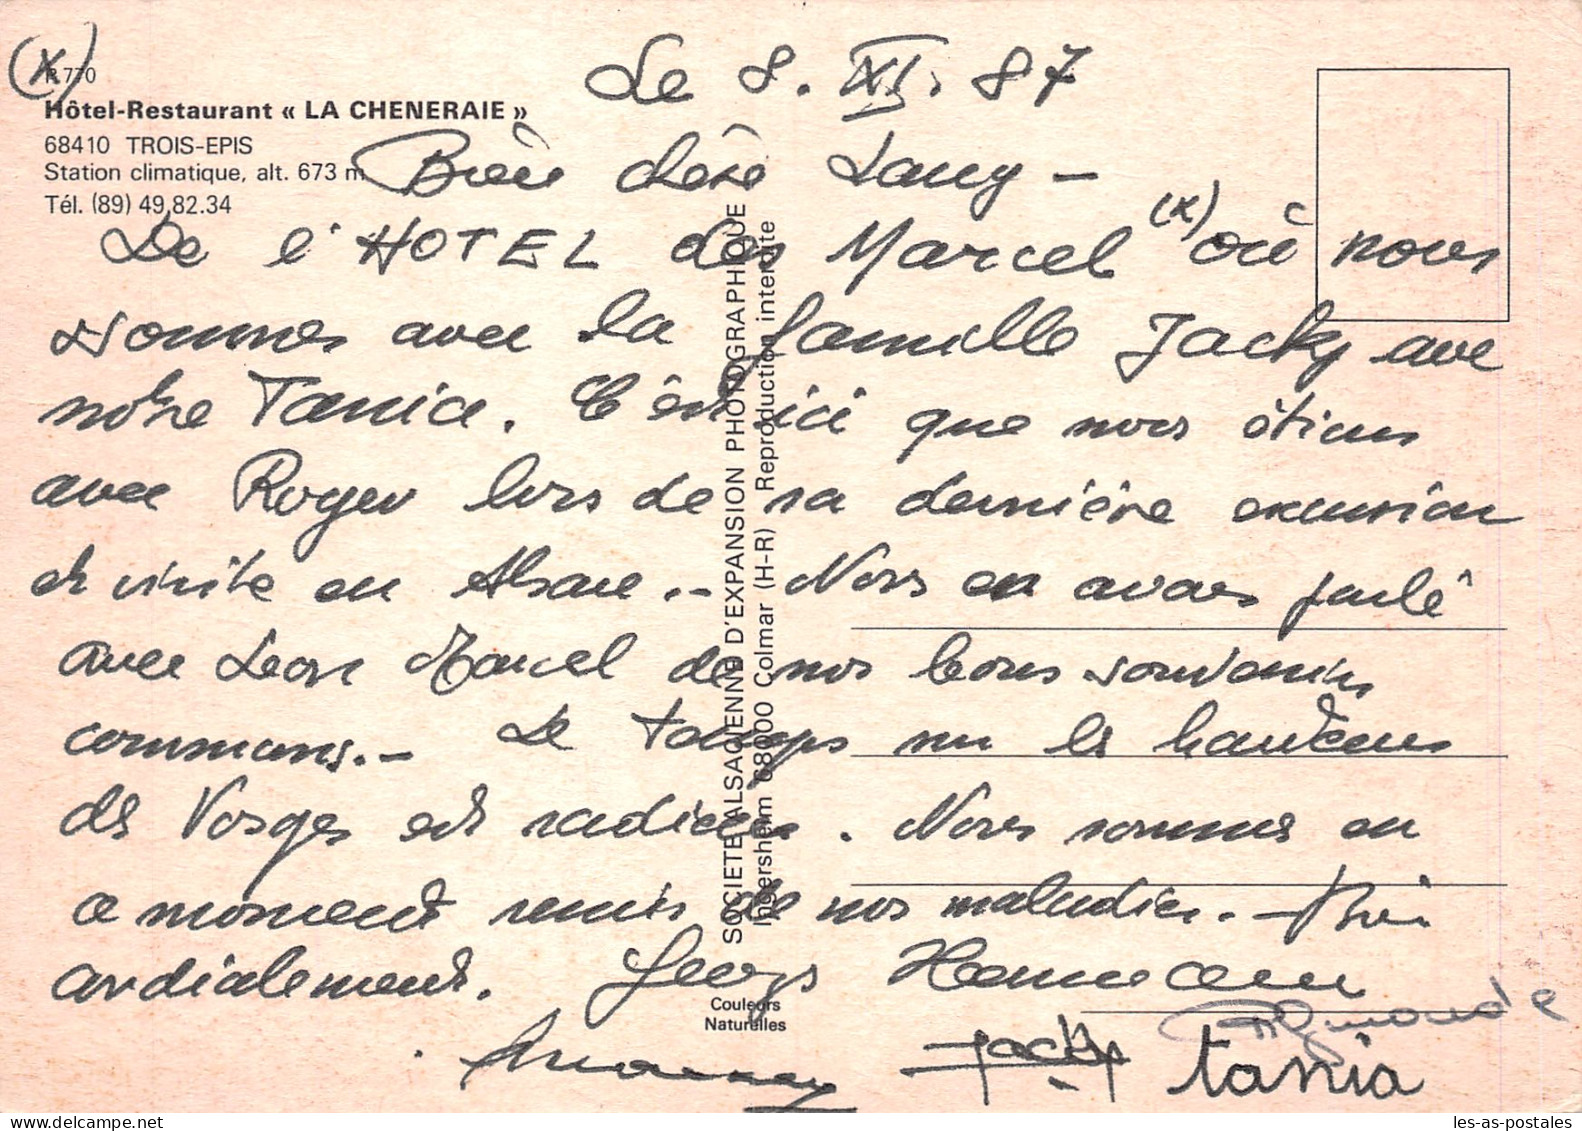 (X)
R 770
Hôtel-Restaurant « LA CHENERAIE »
68410 TROIS-EPIS
Station climatique, alt. 673 m
Tél. (89) 49.82.34
Le 8. XI. 87
Bien chère Lany -
De l'HOTEL des Marcel (x) où nous
sommes avec la famille Jacky avec
notre Tania. C'est ici que nous étions
avec Roger lors de sa dernière excursion
et visite en Alsace.- Nous en avons parlé
avec Léon Marcel de nos bons souvenirs
communs.- Le temps sur les hauteurs
des Vosges est radieux. Nous sommes en
ce moment remis de nos maladies. - Bien
cordialement. Georges
Jacky
tania
SOCIETE ALSACIENNE D'EXPANSION PHOTOGRAPHIQUE
Ingersheim 68000 Colmar (H-R) Reproduction interdite
Couleurs
Naturelles
les-as-postales